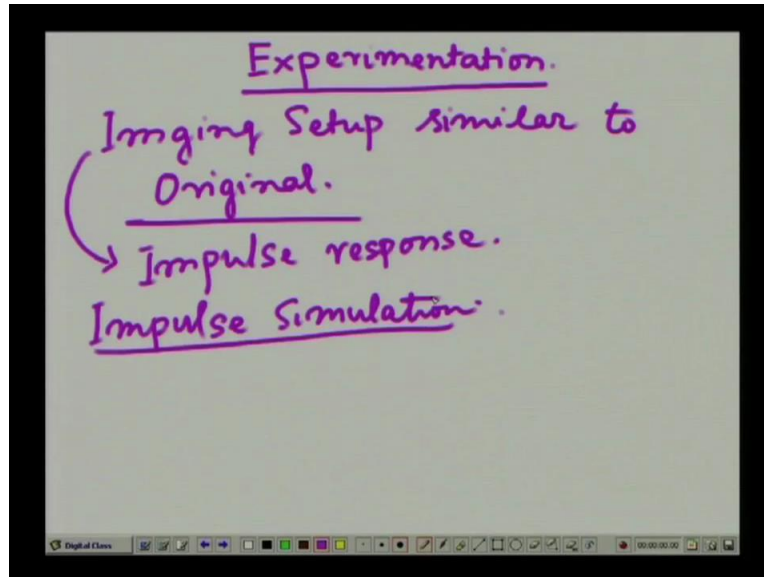 Experimentation.
Imging Setup similar to
Original.
Impulse response.
Impulse Simulation.
Digital Class
00:00:00.00